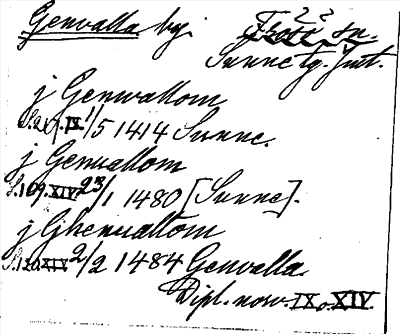 Genvalla by.
Sunne tg. Jmt.
j Genwallom
S. 267. IX 1/5 1414 Sunne.
j Genuallom
S. 109. XIV 23/1 1480 [Sunne].
j Ghenuallom
S. 120. XIV 2/2 1484 Genvalla.
Dipl. nov. IX o. XIV.